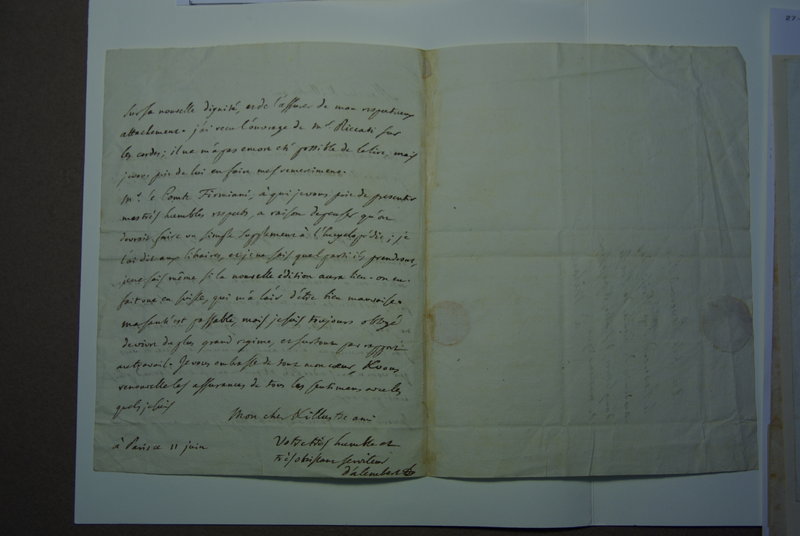 sur sa nouvelle dignité, et de l'assurer de mon respectueux
attachement. j'ai recu l'ouvrage de mr Riccati sur
les cordes; il ne m'a pas encore eté possible de le lire, mais
je vous prie de lui en faire mes remercimens.
Mr. le Comte Firmiani, à qui je vous prie de presenter
mes très humbles respects, a raison de penser qu'on
devroit faire un simple supplement à l'Encyclopédie; je
l'ai dit aux libraires, et je ne sais quel parti ils prendront,
je ne sais même si la nouvelle édition aura lieu. on en
fait une en suisse, qui m'a l'air d'être bien mauvaise.
ma santé est passable, mais je suis toujours obligé
de vivre du plus grand regime, et surtout par rapport
au travail. Je vous embrasse de tout mon coeur, & vous
renouvelle les assurances de tous les sentimens avec les
quels je suis
Mon cher & illustre ami
Votre très humble et
à Paris ce 11 juin
très obéissant serviteur
d'alembert
27.